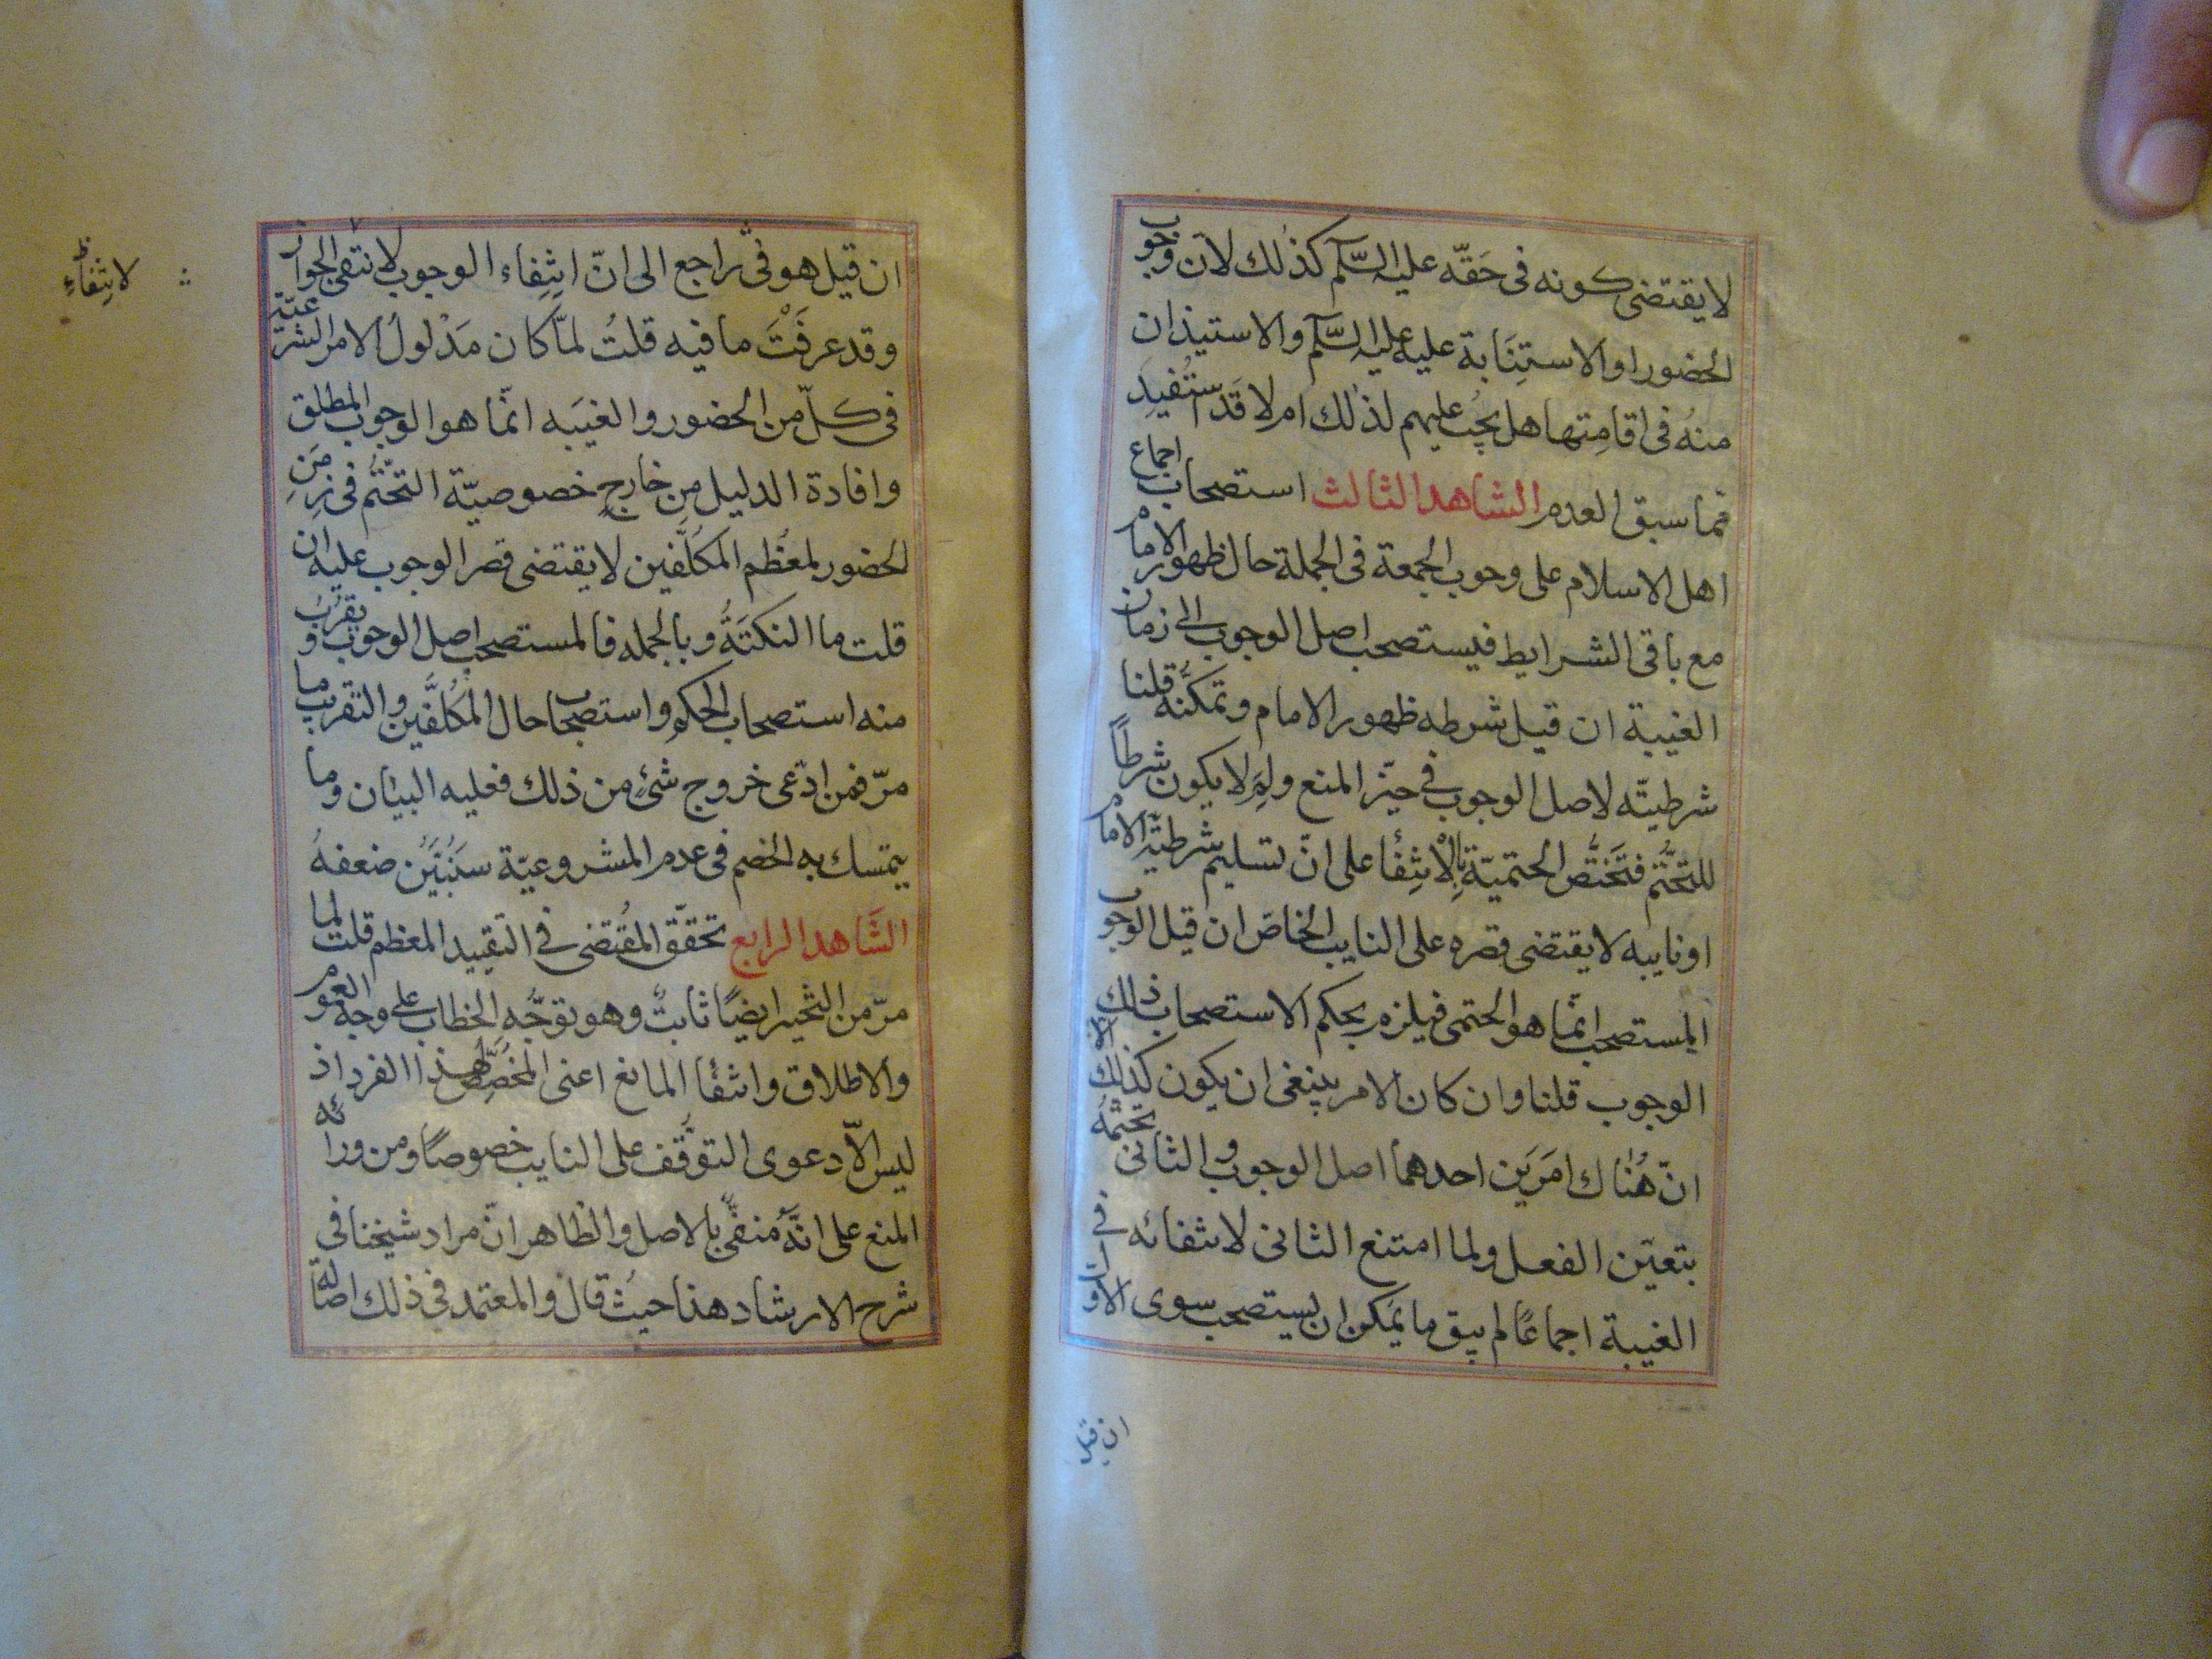 لا يقتضى كونه فى حَقّه عليه السَّلم كذٰلك لانّ وجوب
الحضور او الاستِنَابة عليه عليه السَّلم والاستيذان
منهُ فى اقامِتها هل يجبُ عليهم لذٰلك ام لا قَد استُفيدِ
ممّا سبق العدم الشاهد الثالث استصحاب اجماع
اهل الاسلام على وجوب الجمعة فى الجملة حال ظهور الامام
مع باقى الشرايط فيستصحب اصل الوجوب الى زمان
الغيبة ان قيل شرطه ظهور الامام و تمكنّه قلنا
شرطيتّه لاصل الوجوب فى حيّز المنع ولِمَ لا يكون شرطاً
للتحتّم فتَختصُّ الحتميّة بِالْانتِفا على انّ تسليم شرطيّة الامام
او نايبه لا يقتضى قصره على النايب الخاصّ ان قيل الوجوب
المستصحب انمّا هو الحتمى فيلزم بحكم الاستصحاب ذلك
الوجوب قلنا وان كان الامر ينبغى ان يكون كذلك الا
انّ هُنٰاك امَرَين احدهما اصل الوجوب والثانى تحتّمُه
بتعيّن الفعل ولما امتنع الثانى لانتفائه فى
الغيبة اجماعًا لم يبق ما يمكن ان يستصحب سوى الاوّل
ان قيل
ان قيل هو فىّ راجع الى انّ انتِفاء الوجوب لا نتفى الجواز
لانتِفاءِ
وقد عرفَتَْ ما فيه قلتُ لمّا كان مَدْلولُ الامر الشرعيّة
فى كلّ من الحضور والغيبَه انمّا هو الوجوب المطلق
وافادة الدليل مِن خارجٍ خصوصيّة التحّتُّم فى زمَنِ
الحضور لمعظَم المكَلّفَين لا يقتضى قصر الوجوب عليه ان
قلت ما النكتَةُ وبالجمله فالمستصحب اصل الوجوب و يقرُبُ
منه استصحاب الحكم واستصحاب حال المكلّفَين والتقريب ما
مرّ فمن ادّعى خروج شئٍ من ذلك فعليه البيٰان وما
يتمسك به الخصم فى عدم المشروعيّة سَنُبَيّن ضعفهُ
الشَّاهد الرابع تحققّ المقُتضى فى التقييد المعظم قلت لما
مرّ من التخيير ايضًا ثابتٌ وهو توجّه الخطاب على وجه العموم
والاطلاق وانتفٰا المانع اعنى المخصِّص لهذا الفرد اذ
ليس الاّ دعوى التوقّف على النايب خصوصًا ومن ورائه
المنع على انّهُ منفىٌّ بالاصل والظاهر انّ مراد شيخنا فى
شرح الارشاد هذا حيثُ قال والمعتمد فى ذلك اصالة